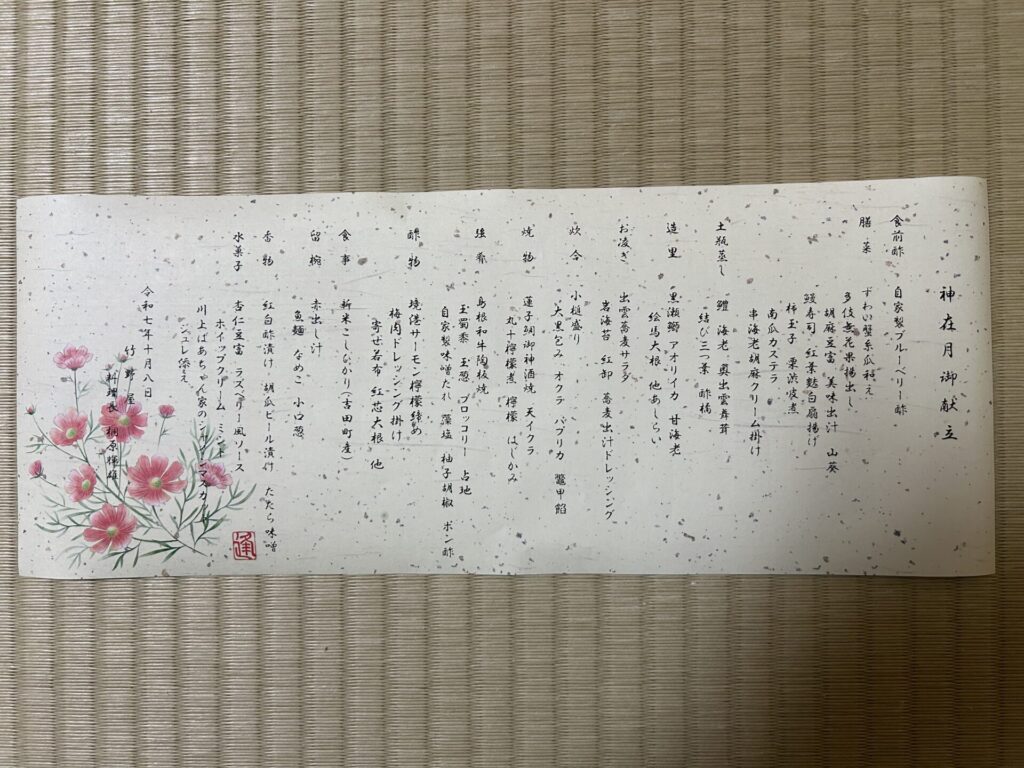 神在月御献立
食前酢 自家製ブルーベリー酢
膳菜 ずわい蟹糸瓜和え
多伎無花果揚出し
胡麻豆富 美味出汁 山葵
鰻寿司 紅葉麩白扇揚げ
柿玉子 栗渋皮煮
南瓜カステラ
串海老胡麻クリーム掛け
土瓶蒸し 鱧 海老 奥出雲舞茸
結び三つ葉 酢橘
造里 黒瀬鰤 アオリイカ 甘海老
絵馬大根 他あしらい
お凌ぎ 出雲蕎麦サラダ
岩海苔 紅卸 蕎麦出汁ドレッシング
炊合 小槌盛り
大黒包み オクラ パプリカ 鼈甲餡
焼物 蓮子鯛御神酒焼 天イクラ
丸十檸檬煮 檸檬 はじかみ
強肴 島根和牛陶板焼
玉蜀黍 玉葱 ブロッコリー 占地
自家製味噌だれ 藻塩 柚子胡椒 ポン酢
酢物 境港サーモン檸檬締め
梅肉ドレッシング掛け
寄せ若布 紅芯大根 他
食事 新米こしひかり(吉田町産)
留椀 赤出し汁
魚麺 なめこ 小口葱
香物 紅白酢漬け 胡瓜ビール漬け たたら味噌
水菓子 杏仁豆富 ラズベリー風ソース
ホイップクリーム ミント
川上ばあちゃん家のシャインマスカット
ジュレ添え
令和七年十月八日
竹野屋
料理長 桐原
逢